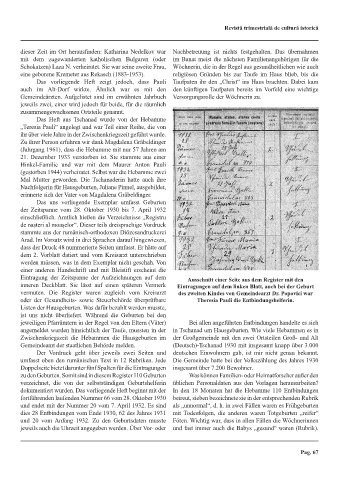 Revistă trimestrială de cultură istorică
dieser Zeit im Ort herausfinden: Katharina Nedelkov war
mit dem zugewanderten katholischen Bulgaren (oder
Schokatzen) Laza N. verheiratet. Sie war seine zweite Frau,
eine geborene Kremeter aus Rekasch (1883-1953).
Das vorliegende Heft zeigt jedoch, dass Pauli
auch im Alt-Dorf wirkte. Ähnlich war es mit den
Gemeindeärzten. Aufgelistet sind im erwähnten Jahrbuch
jeweils zwei, einer wird jedoch für beide, für die räumlich
zusammengewachsenen Ortsteile genannt.
Das Heft aus Tschanad wurde von der Hebamme
„Teresia Pauli” angelegt und war Teil einer Reihe, die von
ihr über viele Jahre in der Zwischenkriegszeit geführt wurde.
Zu ihrer Person erfahren wir dank Magdalena Gräbeldinger
(Jahrgang 1961), dass die Hebamme mit nur 57 Jahren am
21. Dezember 1933 verstorben ist. Sie stammte aus einer
Hinkel-Familie und war mit dem Maurer Anton Pauli
(gestorben 1944) verheiratet. Selbst war die Hebamme zwei
Mal Mutter geworden. Die Tschanaderin hatte auch ihre
Nachfolgerin für Hausgeburten, Juliane Pinnel, ausgebildet,
erinnerte sich der Vater von Magdalena Gräbeldinger.
Das uns vorliegende Exemplar umfasst Geburten
der Zeitspanne vom 28. Oktober 1930 bis 7. April 1932
einschließlich. Amtlich hießen die Verzeichnisse „Registru
de nașteri al moașelor”. Dieser teils dreisprachige Vordruck
stammte aus der rumänisch-orthodoxen Diözesandruckerei
Arad. Im Vorsatz wird in drei Sprachen darauf hingewiesen,
dass der Druck 48 nummerierte Seiten umfasst. Er hätte auf
dem 2. Vorblatt datiert und vom Kreisamt unterschrieben
werden müssen, was in dem Exemplar nicht geschah. Von
einer anderen Handschrift und mit Bleistift erscheint die
Eintragung der Zeitspanne der Aufzeichnungen auf dem
inneren Deckblatt. Sie lässt auf einen späteren Vermerk
vermuten. Die Register waren zugleich vom Kreisamt
oder der Gesundheits- sowie Steuerbehörde überprüfbare
Listen der Hausgeburten. Was dafür bezahlt werden musste,
ist uns nicht überliefert. Während die Geburten bei den
jeweiligen Pfarrämtern in der Regel von den Eltern (Väter)
angemeldet wurden hinsichtlich der Taufe, mussten in der
Zwischenkriegszeit die Hebammen die Hausgeburten im
Gemeindeamt der staatlichen Behörde melden.
Der Vordruck geht über jeweils zwei Seiten und
umfasst oben den rumänischen Text in 12 Rubriken. Jede
Doppelseite bietet darunter fünf Spalten für die Eintragungen
zu den Geburten. Somit sind in diesem Register 110 Geburten
verzeichnet, die von der selbständigen Geburtshelferin
dokumentiert wurden. Das vorliegende Heft beginnt mit der
fortführenden laufenden Nummer 66 vom 28. Oktober 1930
und endet mit der Nummer 20 vom 7. April 1932. Es sind
dies 28 Entbindungen vom Ende 1930, 62 des Jahres 1931
und 20 vom Anfang 1932. Zu den Geburtsdaten musste
jeweils auch die Uhrzeit angegeben werden. Über Vor- oder
Nachbetreuung ist nichts festgehalten. Das übernahmen
im Banat meist die nächsten Familienangehörigen für die
Wöchnerin, die in der Regel aus gesundheitlichen wie auch
religiösen Gründen bis zur Taufe im Haus blieb, bis die
Taufpaten ihr den „Christ” ins Haus brachten. Dabei kam
den künftigen Taufpaten bereits im Vorfeld eine wichtige
Versorgungsrolle der Wöchnerin zu.
Ausschnitt einer Seite aus dem Register mit den
Eintragungen auf dem linken Blatt, auch bei der Geburt
des zweiten Kindes von Gemeindearzt Dr. Popovici war
Theresia Pauli die Entbindungshelferin.
Bei allen angeführten Entbindungen handelte es sich
in Tschanad um Hausgeburten. Wie viele Hebammen es in
der Großgemeinde mit den zwei Ortsteilen Groß- und Alt
(Deutsch)-Tschanad 1930 mit insgesamt knapp über 3.000
deutschen Einwohnern gab, ist mir nicht genau bekannt.
Die Gemeinde hatte bei der Volkszählung des Jahres 1930
insgesamt über 7.200 Bewohner.
Was können Familien- oder Heimatforscher außer den
üblichen Personaldaten aus den Vorlagen herausarbeiten?
In den 18 Monaten hat die Hebamme 110 Entbindungen
betreut, sieben bezeichnete sie in der entsprechenden Rubrik
als „unnormal”, d. h. in zwei Fällen waren es Frühgeburten
mit Todesfolgen, die anderen waren Totgeburten „reifer”
Föten. Wichtig war, dass in allen Fällen die Wöchnerinnen
und fast immer auch die Babys „gesund” waren (Rubrik).
Pag. 67